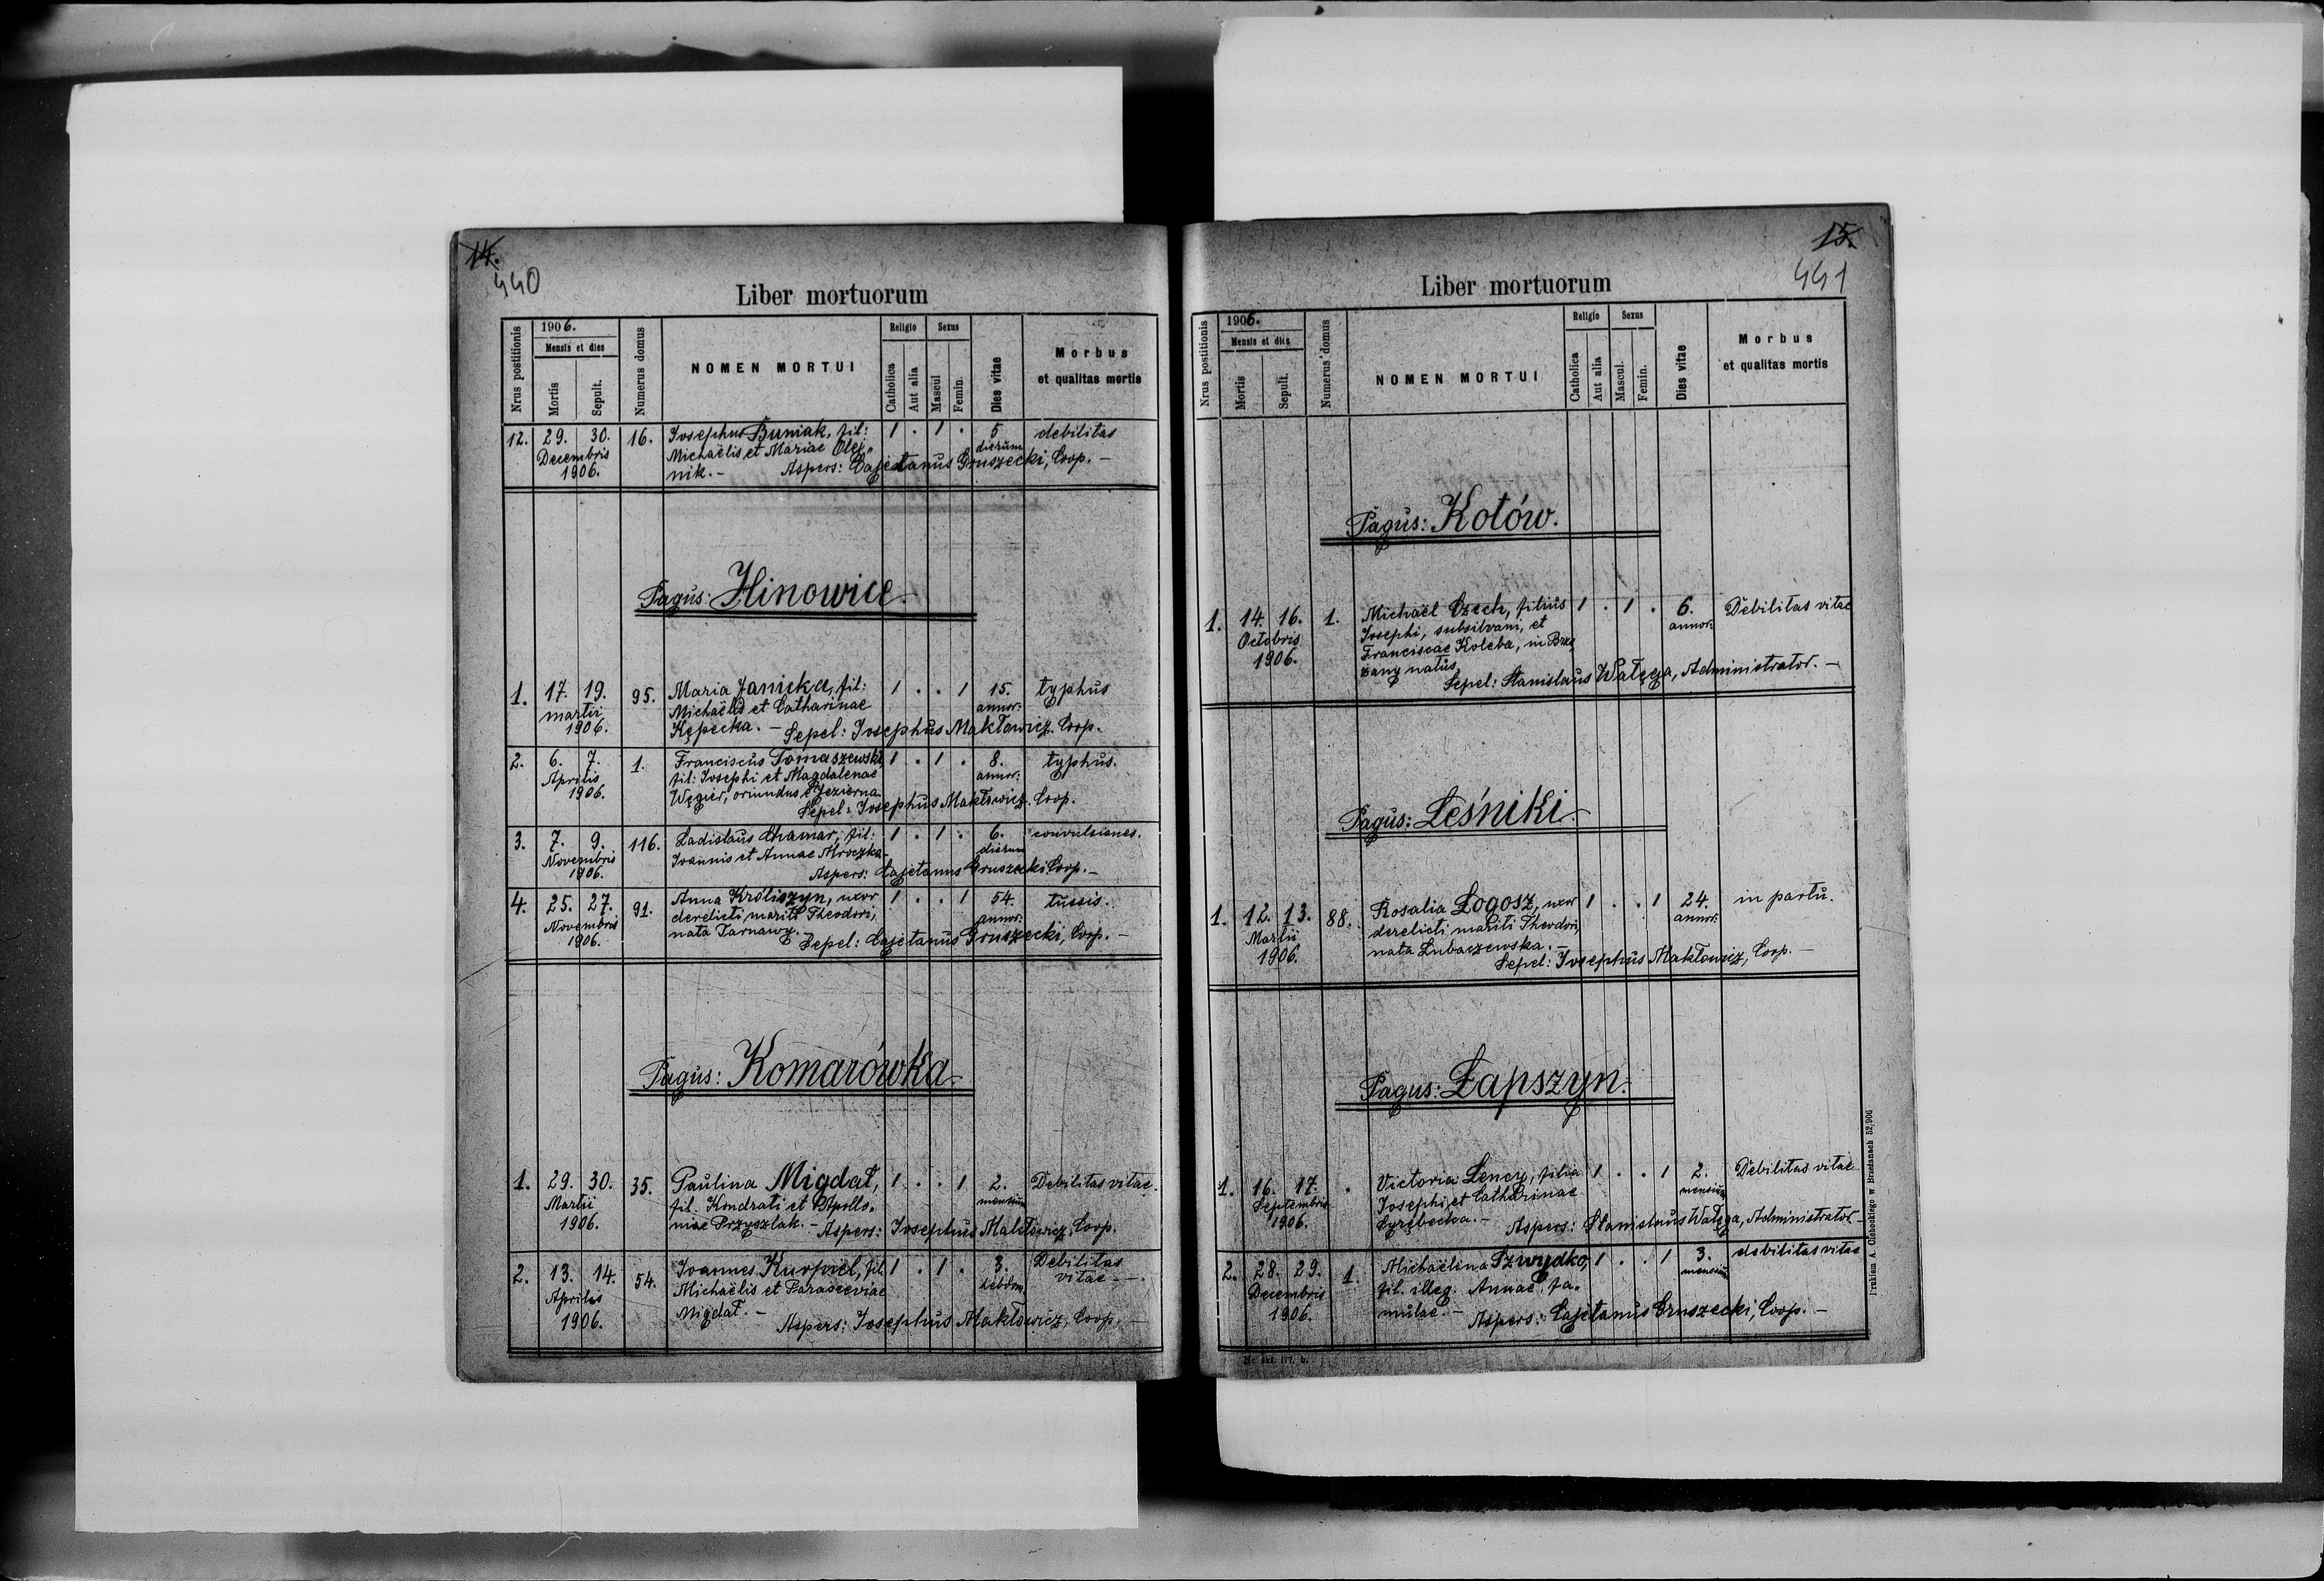 14.
440
Liber mortuorum
Nrus postitionis
1906.
Mensis et dies
Mortis
Sepult.
Numerus domus
NOMEN MORTUI
Religio
Catholica
Aut alia
Sexus
Mascul
Femin.
Dies vitae
Morbus
et qualitas mortis
12. 29. 30. 16. Josephus Buniak, fil: 1 . 1 . 5 debilitas
Decembris Michaëlis et Mariae Olej„ dierum
1906. nik. - Aspers: Cajetanus Gruszecki, Coop. -
Pagus: Hinowice
1. 17. 19. 95. Maria Janicka, fil: 1 . . 1 15. typhus
martii Michaëlis et Catharinae annor:
1906. Kępecka. - Sepel: Josephus Makłowicz. Coop.
2. 6. 7. 1. Franciscus Tomaszewski 1 . 1 . 8. typhus.
Aprilis fil: Josephi et Magdalenae annor:
1906. Węgier, oriundus e Jezierna
Sepel: Josephus Makłowicz. Coop.
3. 7. 9. 116. Ladislaus Chamar, fil: 1 . 1 . 6. convulsiones.
Novembris Joannis et Annae Mroczka dierum
1906. Aspers: Cajetanus Gruszecki Coop. -
4. 25. 27. 91. Anna Króliszyn, uxor 1 . . 1 54. tussis.
Novembris derelicti mariti Theodori, annor:
1906. nata Tarnawy. - Sepel: Cajetanus Gruszecki, Coop. -
Pagus: Komarówka
1. 29. 30. 35. Paulina Migdał, 1 . . 1 2. Debilitas vitae.
Martii fil. Kondrati et Apollo„ mensium
1906. niae Przyszlak. - Aspers: Josephus Makłowicz, Coop.
2. 13. 14. 54. Joannes Kurpiel, fil. 1 . 1 . 3. Debilitas
Aprilis Michaëlis et Parasceviae hebdom. vitae -
1906. Migdał. - Aspers: Josephus Makłowicz, Coop. -
15.
441
Liber mortuorum
Nrus postitionis
1906.
Mensis et dies
Mortis
Sepult.
Numerus domus
NOMEN MORTUI
Religio
Catholica
Aut alia
Sexus
Mascul.
Femin.
Dies vitae
Morbus
et qualitas mortis
Pagus: Kotów.
1. 14. 16. 1. Michaël Czech, filius 1 . 1 . 6. Debilitas vitae
Octobris Josephi, subsilvani, et annor:
1906. Franciscae Koleba, in Brze„
zany natus,
Sepel: Stanislaus Wałęga, Administrator. -
Pagus: Leśniki
1. 12. 13. 88. Rosalia Łogosz, uxor 1 . . 1 24. in partu.
Martii derelicti mariti Theodori, annor:
1906. nata Lubaczewska. -
Sepel: Josephus Makłowicz, Coop. -
Pagus: Łapszyn.
1. 16. 17. . Victoria Lency, filia 1 . . 1 2. Debilitas vitae
Septembris Josephi et Catharinae mensium
1906. - Aspers: Stanislaus Wałęga, Administrator -
2. 28. 29. 1. Michaëlina Szwydko, 1 . . 1 3. debilitas vitae
Decembris fil. illeg. Annae, fa„ mensium
1906. mulae. - Aspers: Cajetanus Gruszecki, Coop. -
Drukiem A. Olebookiego w Brzeżanach 52/906